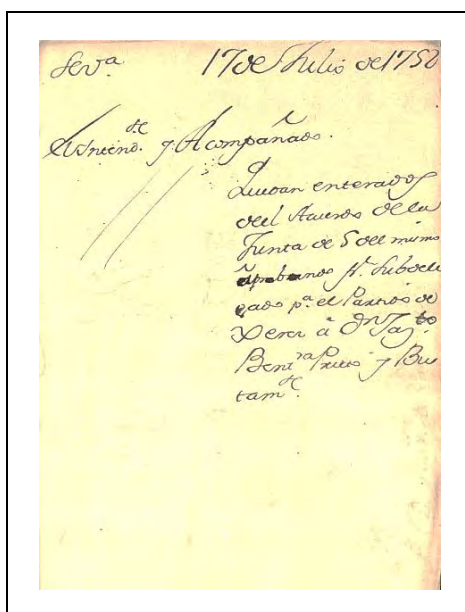 Sev.ª 17 de Julio de 1750
El Yntend.te y Acompañado.
Quedan enterados
del Acuerdo de la
Junta de 5 del mismo
aprobando p.r Subdele
gado p.ª el Partido de
Xerez à Dn Jazto
Bent.ra Prieto y Bus
tam.te